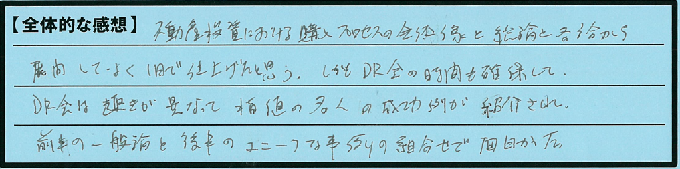 【全体的な感想】 不動産投資における購入プロセスの全体像と総論と各論から
展開してよく1日で仕上げたと思う。しかもDR会の時間も確保して。
DR会は趣きが異なって 相値の名人の成功例が紹介され、
前半の一般論と後半のユニークな事例の組合せで面白かった